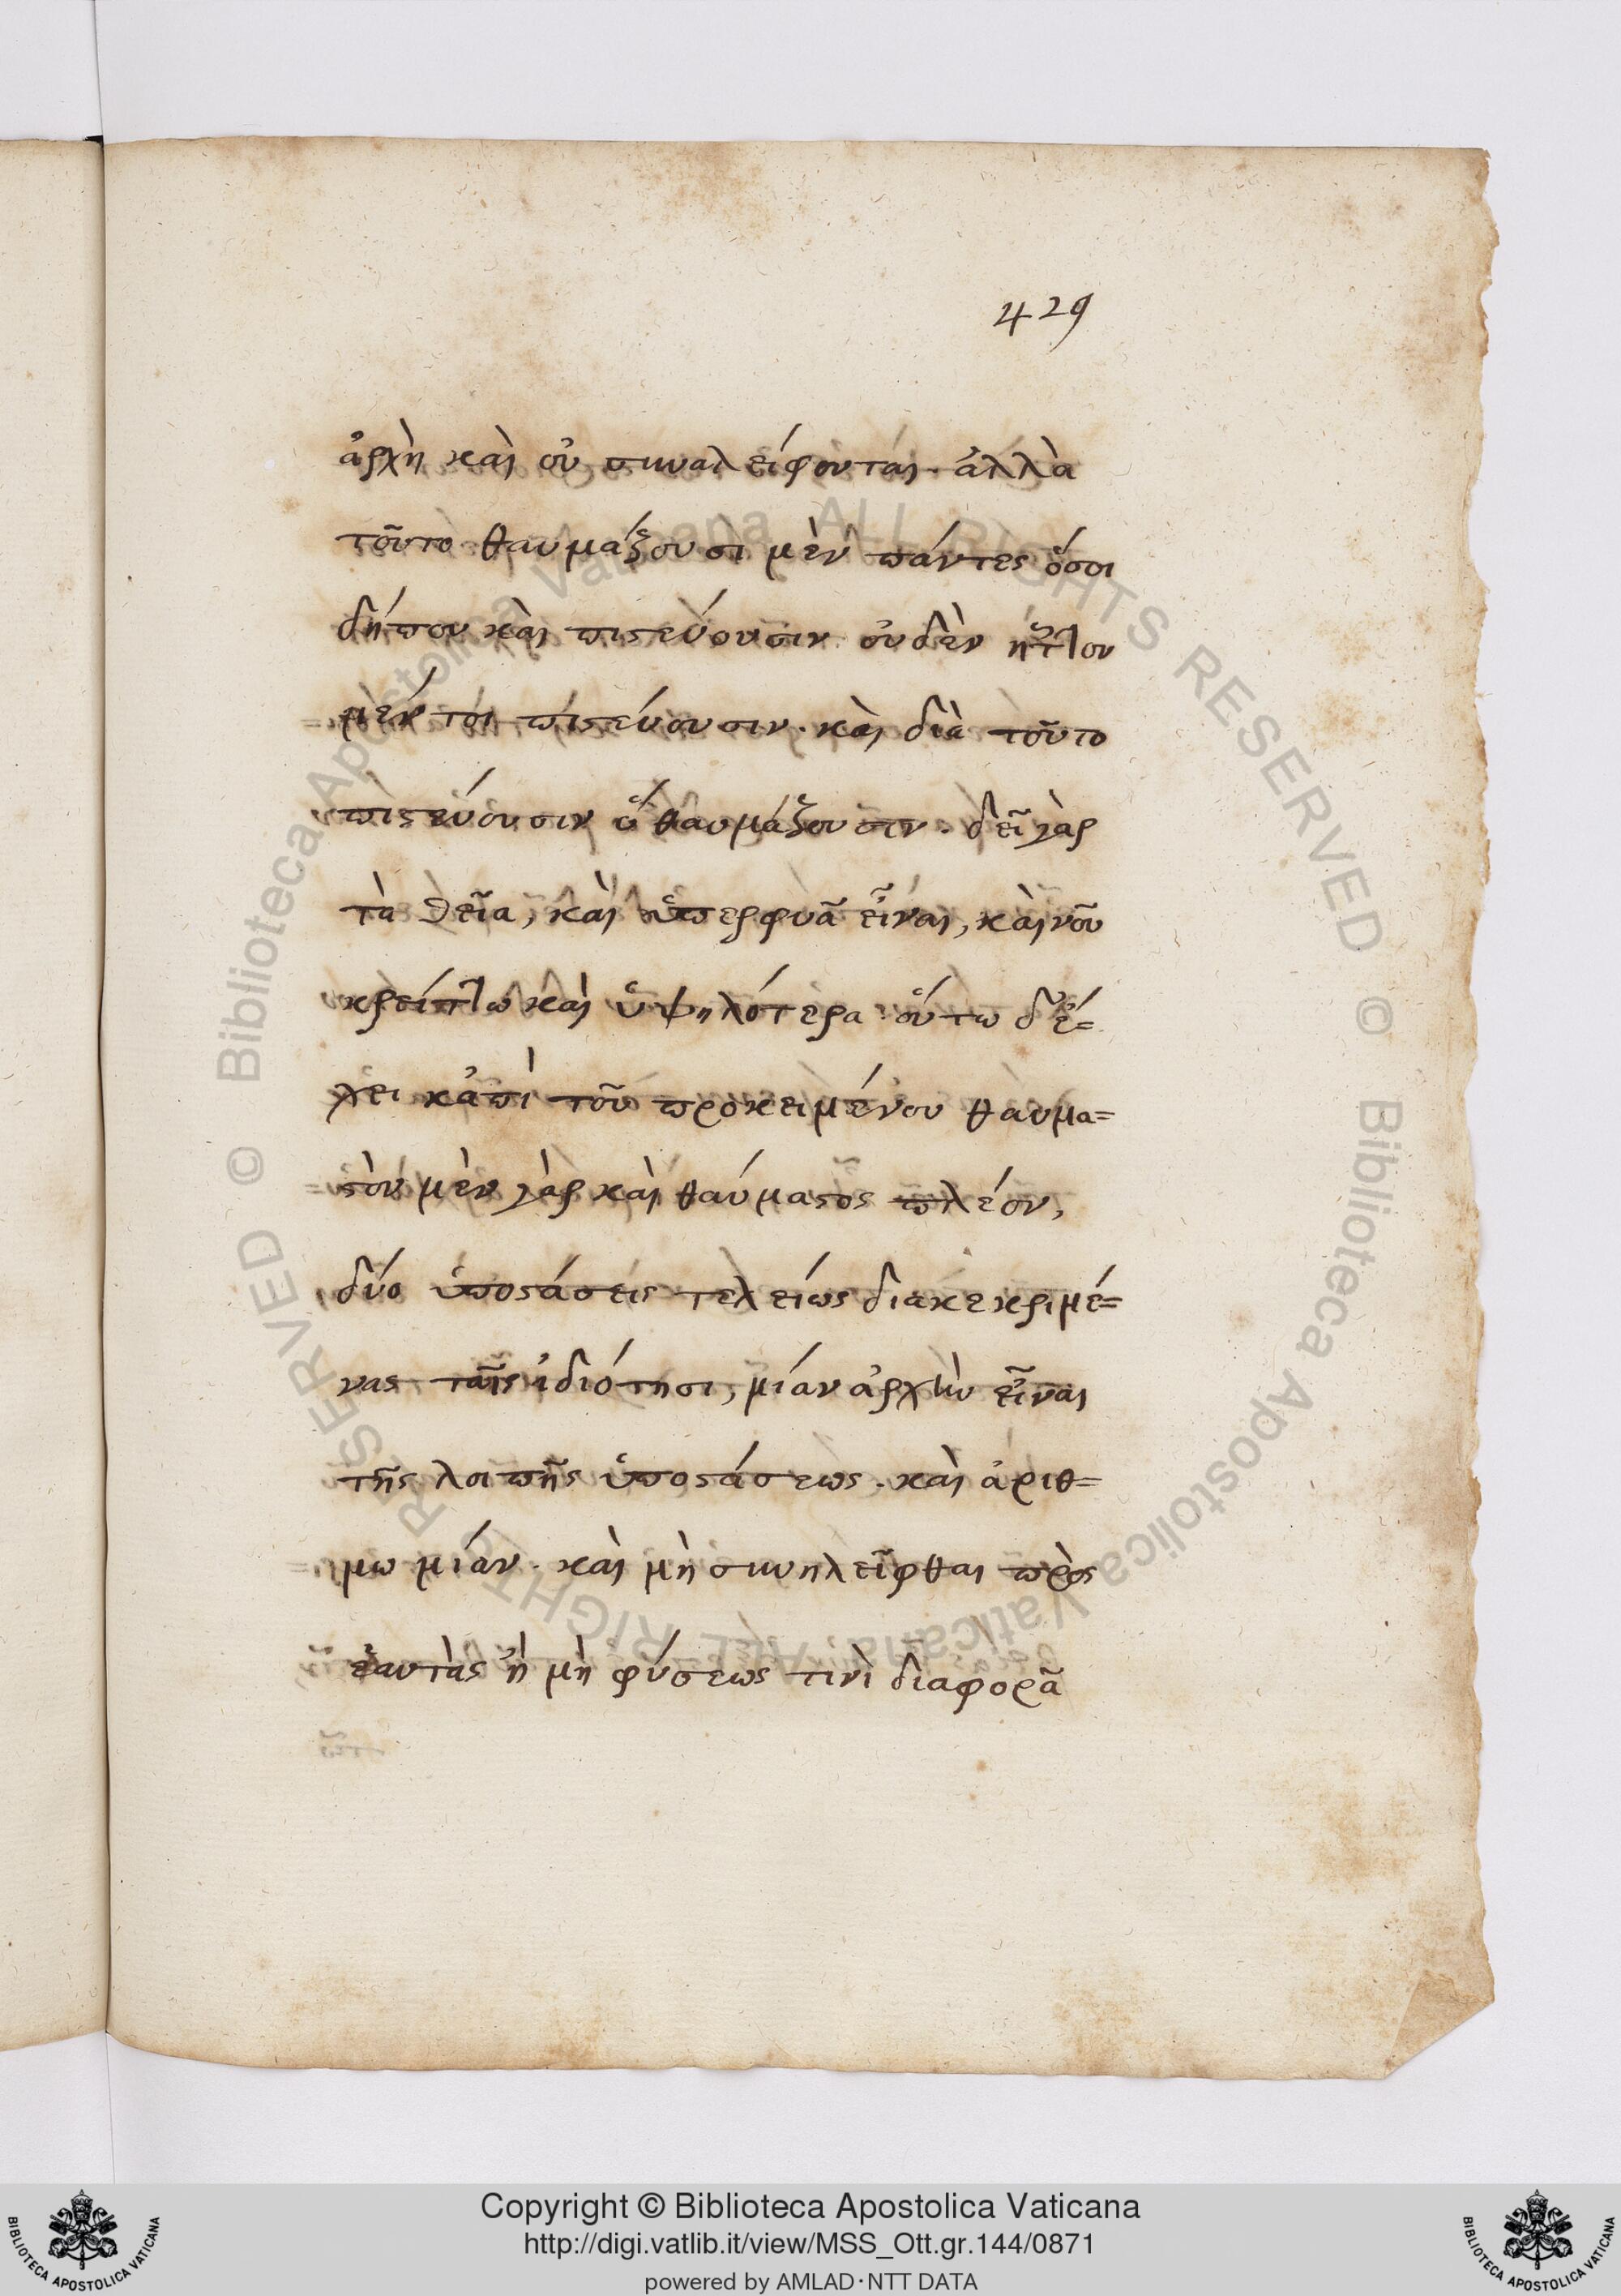 429
ἀρχὴ καὶ οὐ συναλείφονται. ἀλλὰ
τοῦτο θαυμάζουσι μὲν πάντες ὅσοι
δήπου καὶ πιστεύουσιν οὐδὲν ἧττον
μέν τοι πιστεύουσιν. καὶ διὰ τοῦτο
πιστεύουσιν ὅ θαυμάζουσιν. δεῖ γὰρ
τὰ θεῖα, καὶ ὑπερφυᾶ εἶναι, καὶ νοῦ
κρείττω καὶ ὑψηλότερα οὕτω δ' ἔ=
χει κἀπὶ τοῦ προκειμένου θαυμα=
στὸν μὲν γὰρ καὶ θαύματος πλέον,
δύο ὑποστάσεις τελείως διακεκριμέ=
νας ταῖς ἰδιότησι, μίαν ἀρχὴν εἶναι
τῆς λοιπῆς ὑποστάσεως. καὶ ἀριθ=
μω μίαν. καὶ μὴ συνηλεῖφθαι πρὸς
ἑαυτὰς ἢ μὴ φύσεως τινὶ διαφορᾶ
© Biblioteca Apostolica Vaticana ALL RIGHTS RESERVED © Biblioteca Apostolica Vaticana, ALL RIGHTS RESERVED
Copyright © Biblioteca Apostolica Vaticana
http://digi.vatlib.it/view/MSS_Ott.gr.144/0871
powered by AMLAD·NTT DATA
BIBLIOTECA APOSTOLICA VATICANA
BIBLIOTECA APOSTOLICA VATICANA